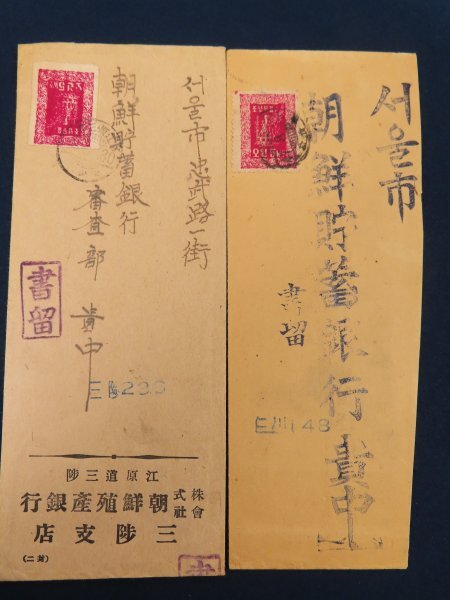 서울市忠武路一街
朝鮮貯蓄銀行
審査部 貴中
書留
三陟
江原道三陟
株式會社 朝鮮殖產銀行
三陟支店
(封二)
서울市
朝鮮貯蓄銀行貴中
書留
148